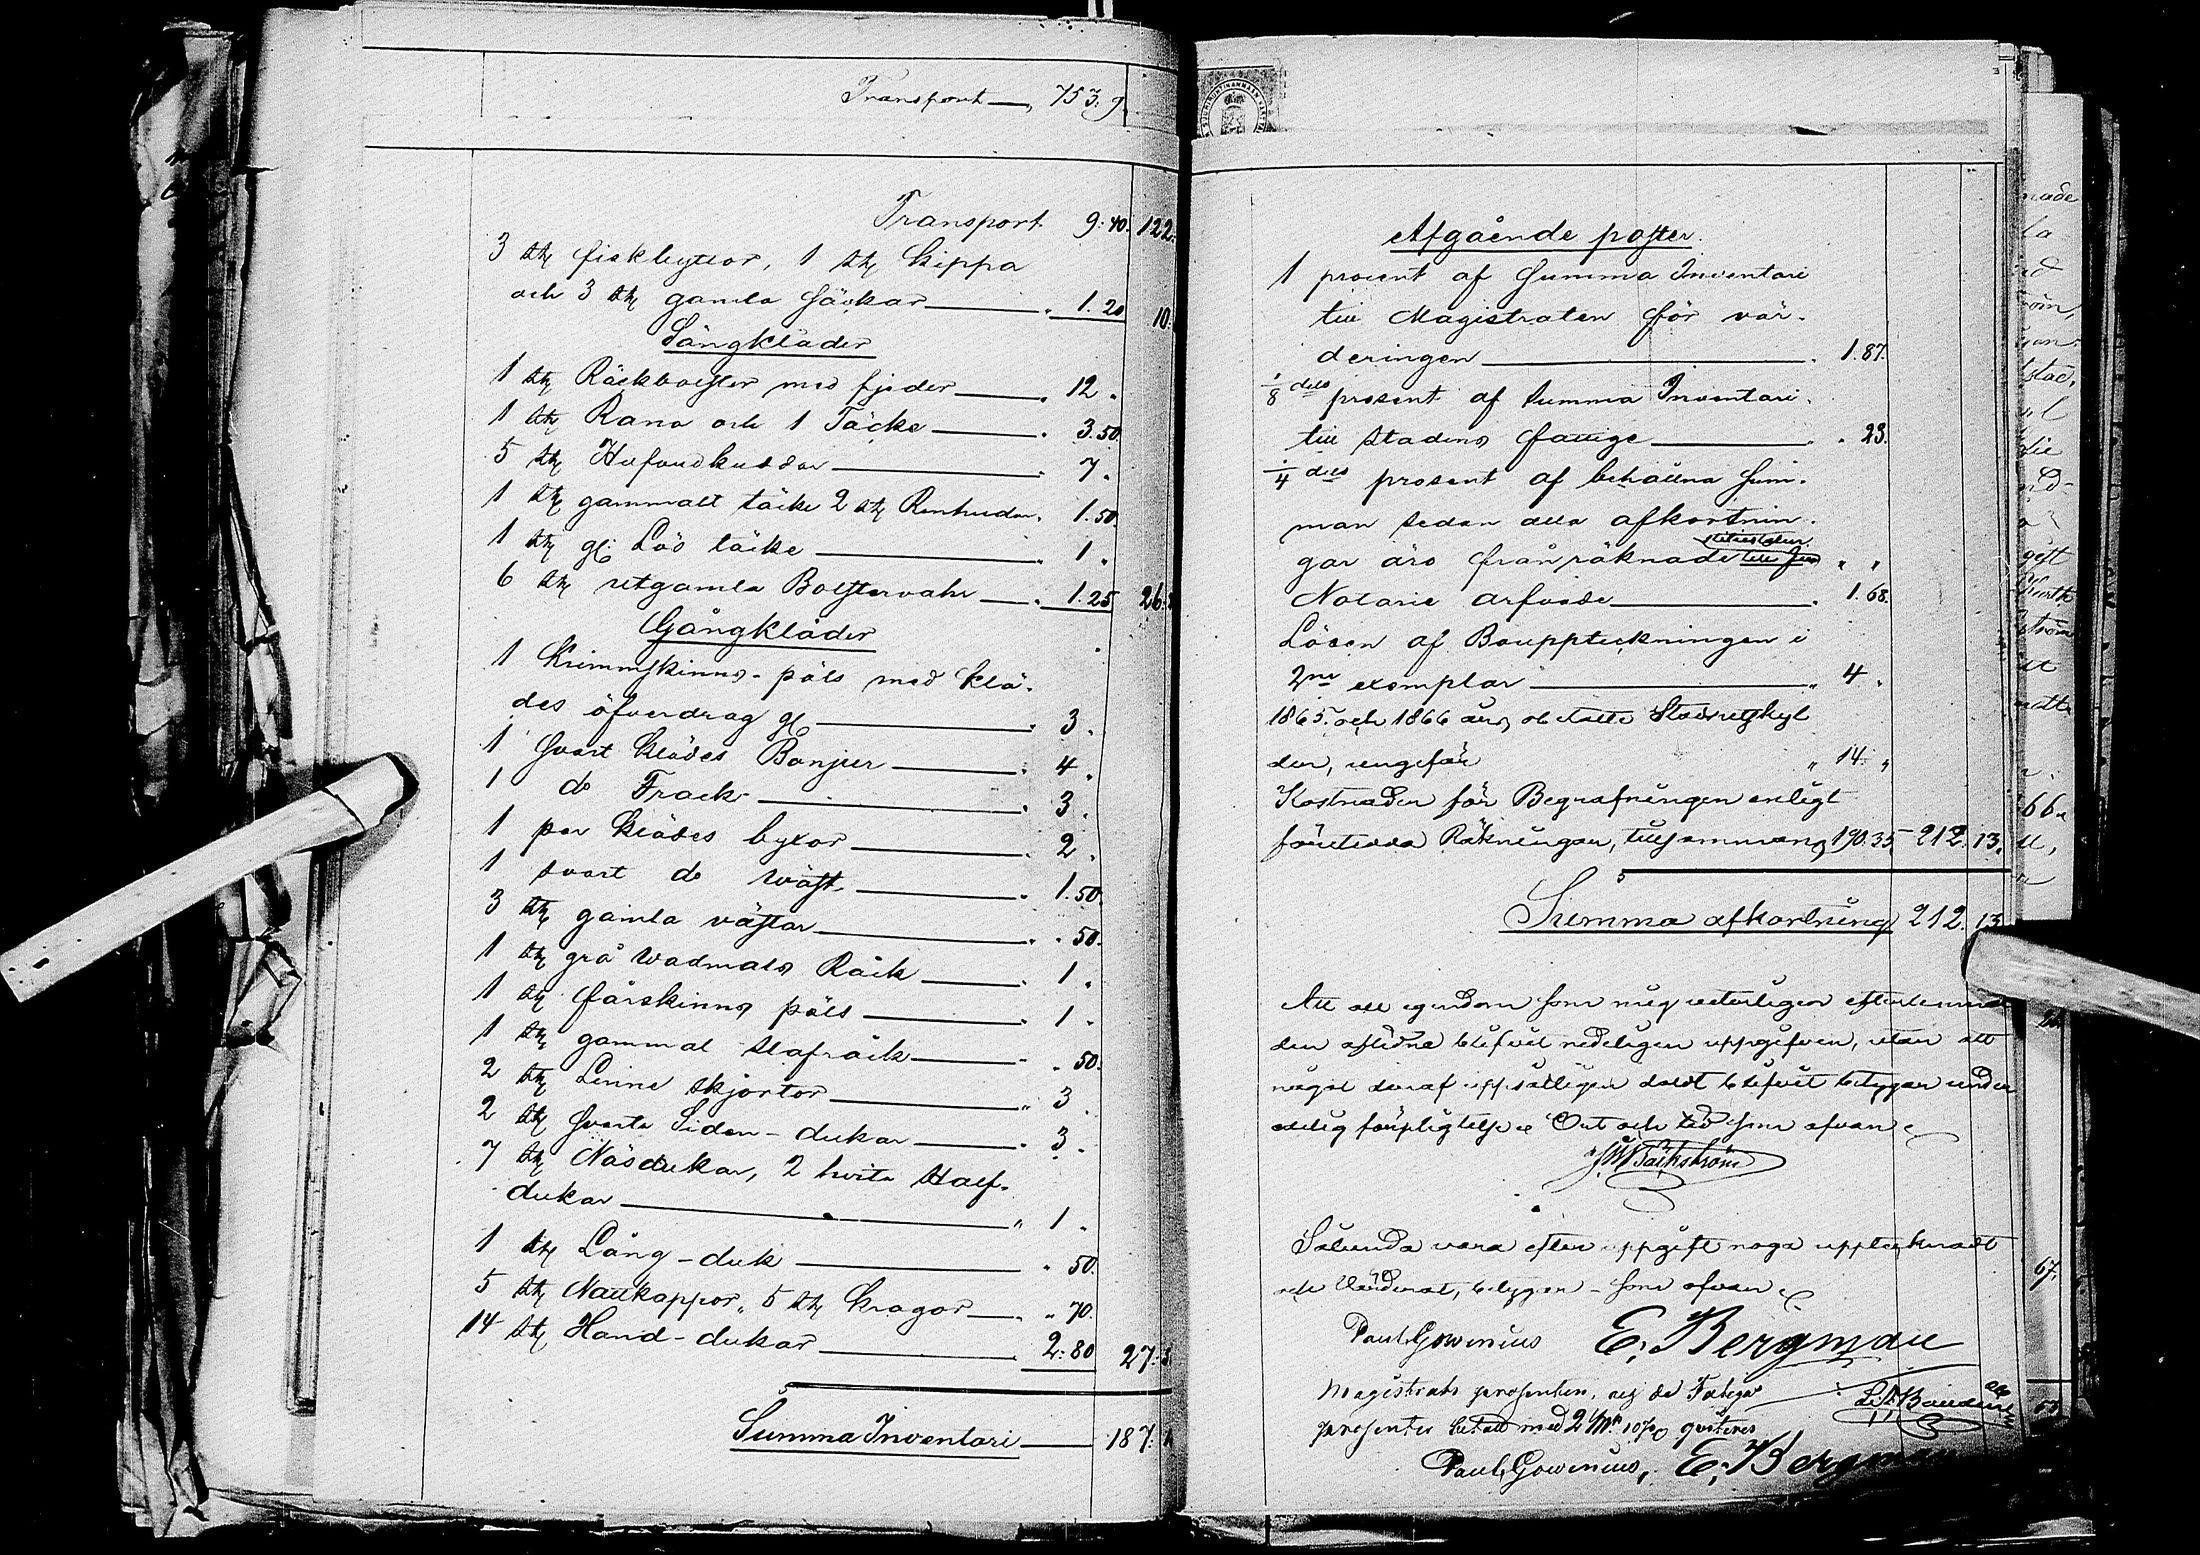 Transport 753. 9.
Transport 9.40. 122.
3 st fiskbyttor, 1 st Kippa
och 3 st gamla Säckar 1.20 10.
Sängkläder
1 st Räckbolster med fjeder 12 "
1 st Rana och 1 Täcke 3.50.
5 st Hufvudkuddar 7 "
1 st gammalt täcke 2 st Renhudar 1.50.
1 st gl. Lös täcke 1 "
6 st utgamla Bolstervahr 1.25 26.
Gångkläder
1 Krimmskinns-päls med klä-
des öfverdrag gl 3 "
1 svart klädes Bonjur 4 "
1 do Frack 3 "
1 par klädes byxor 2 "
1 svart do wäst 1.50.
3 st gamla västar " 50.
1 st grå Wadmals Råck 1 "
1 st fårskinns päls 1 "
1 st gammal slafråck " 50.
2 st Linne skjortor 3
2 st svarta Siden-dukar 3 "
7 st Näsdukar, 2 hvita Half-
dukar " 1 "
1 st Lång-duk " 50.
5 st Nattkappor, 5 st Kragar " 70.
14 st Hand-dukar 2.80 27.
Summa Inventari 187.
Afgående poster.
1 procent af Summa Inventari
till Magistraten för vär-
deringen 1.87.
1/8 dels prosent af Summa Inventari
till stadens fattige " 23.
1/4 dels prosent af behållna Sum-
man sedan alla afkortnin-
gar äro frånräknade
Notarie arfvode 1.68.
Lösen af Bouppteckningen i
2ne exemplar " 4 "
1865 och 1866 års obetalte Stadsutskyl
der, ungefär " 14 "
Kostnaden för Begrafningen enligt
företedda Räkningar, tillsammans 190.35 212. 13.
Summa afkortning 212. 13
Att all egendom som mig veterligen efterlemnats
den aflidne blifvit redeligen uppgifven, utan att
något deraf uppsåtligen doldt blifvit betygar under
edelig förpligtelse Ort och tid som ofvan
Bäckström
Sålunda vara efter uppgift noga upptecknadt
och Värderat, betygar - som ofvan
Paul Gowenius E. Bergman
Magistrats prosenten, och de Fattigas
prosenter betalt med 2 Mk 10 p. qvitteras
Paul Gowenius, E. Bergman
67.